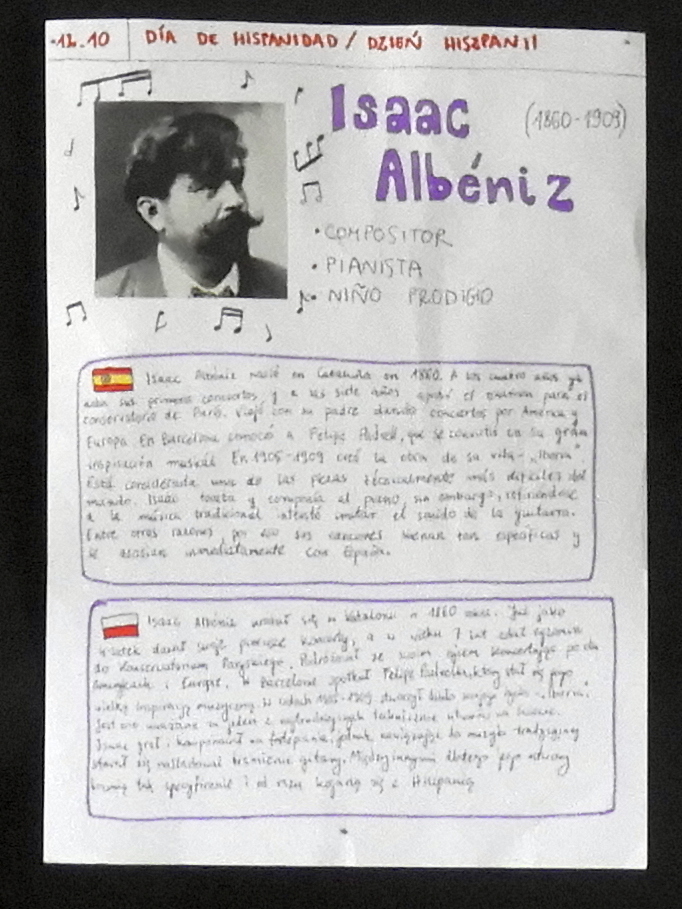 12.10 DÍA DE HISPANIDAD / DZIEŃ HISZPANII
Isaac (1860-1909)
Albéniz
• COMPOSITOR
• PIANISTA
• NIÑO PRODIGIO
Isaac Albéniz nació en Cataluña en 1860. A los cuatro años ya
sus primeros conciertos, y a los siete años aprobó el examen para el
conservatorio de París. Viajó con su padre dando conciertos por América y
Europa. En Barcelona conoció a Felipe Pedrell, que se convirtió en su gran
inspiración musical. En 1905-1909 creó la obra de su vida - "Iberia".
Está considerada una de las piezas técnicamente más difíciles del
mundo. Isaac tocaba y componía al piano, sin embargo, refiriéndose
a la música tradicional intentó imitar el sonido de la guitarra.
Entre otras razones, por eso sus canciones suenan tan específicas y
se asocian inmediatamente con España.
Isaac Albéniz urodził się w Katalonii w 1860 roku. Już jako
dawał swoje pierwsze koncerty, a w wieku 7 lat zdał egzamin
do Konserwatorium Paryskiego. Podróżował ze swoim ojcem koncertując po
i Europie. W Barcelonie spotkał Felipe Pedrella, który stał się jego
wielką inspiracją muzyczną. W latach 1905-1909 stworzył dzieło swojego życia - "Iberia".
Jest ono uważane za jeden z najtrudniejszych technicznie utworów na świecie.
Isaac grał i komponował na fortepianie, jednak nawiązując do muzyki tradycyjnej
starał się naśladować brzmienie gitary. Między innymi dlatego jego utwory
brzmią tak specyficznie i od razu kojarzą się z Hiszpanią